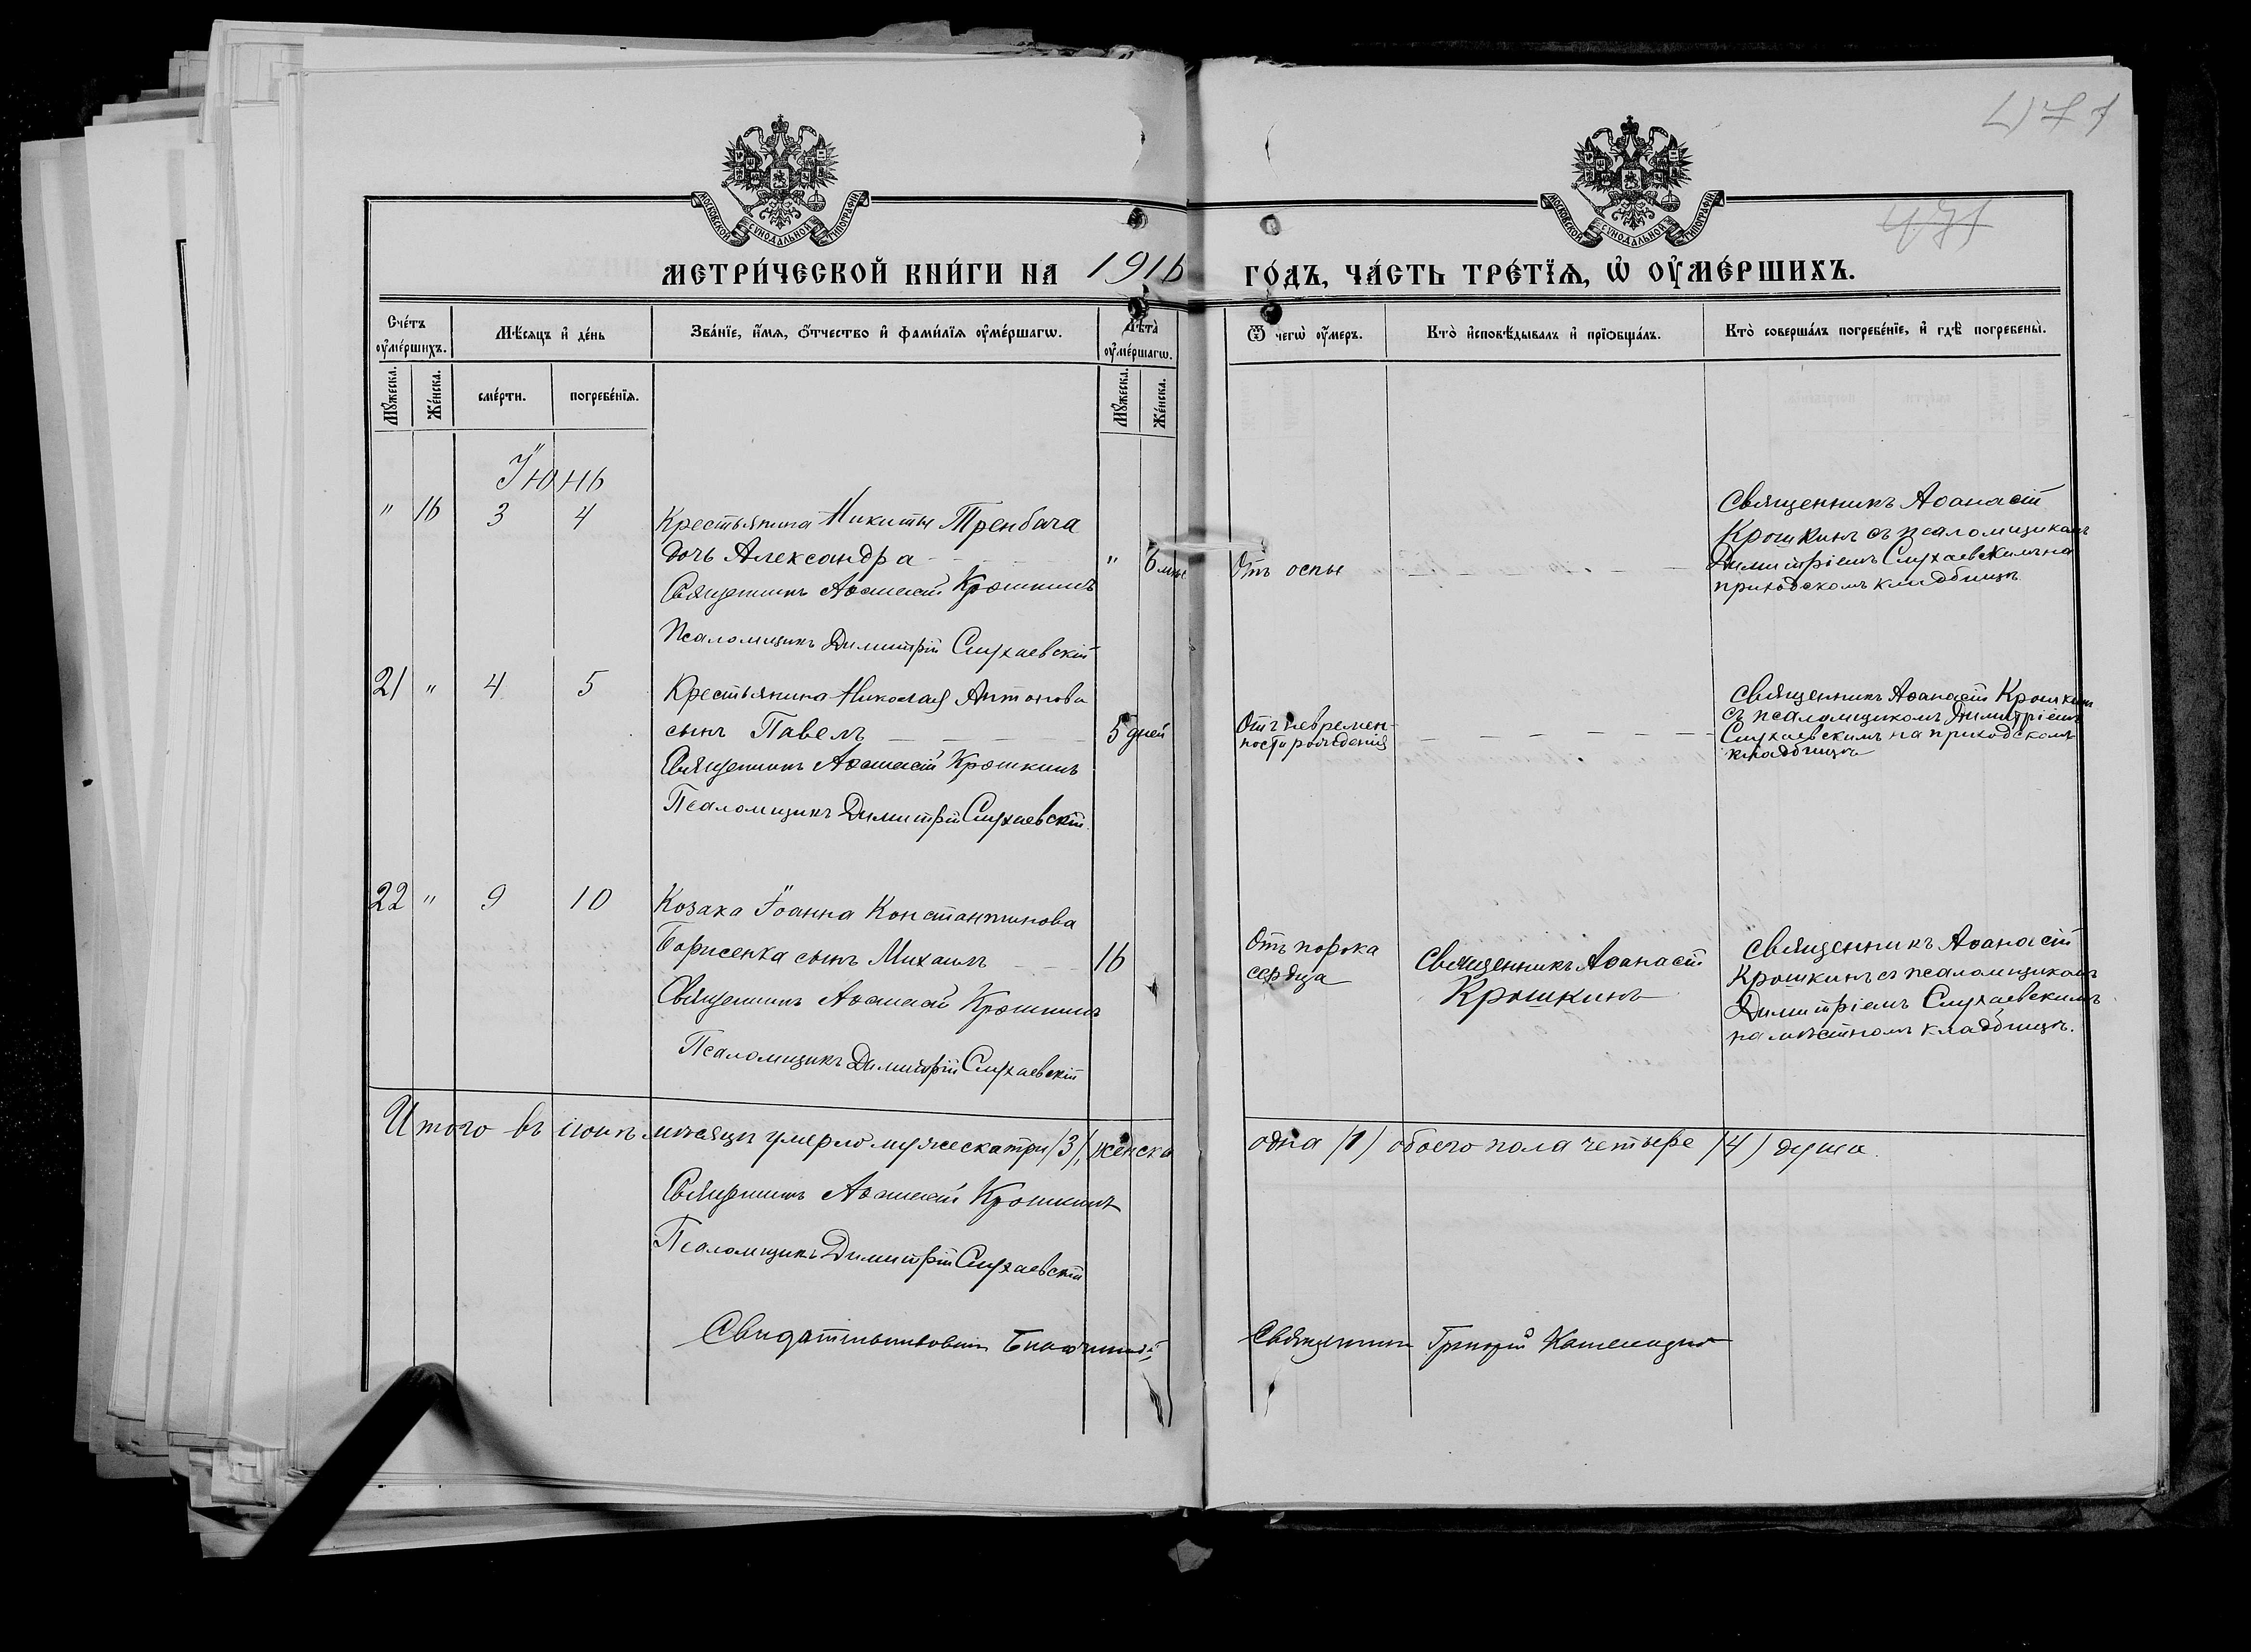 477
471
МОСКОВСКОЙ СѴНОДАЛЬНОЙ ТИПОГРАФІИ
МОСКОВСКОЙ СѴНОДАЛЬНОЙ ТИПОГРАФІИ
МЕТРИ́ЧЕСКОЙ КНИ́ГИ НА 1916 ГО́ДЪ, ЧА́СТЬ ТРЕ́ТЇѦ, Ѡ҆ ОУ҆МЕ́РШИХЪ.
Сче́тъ оу҆ме́ршихъ. Мѣ́сяцъ и҆ де́нь Зва́нїе, и҆́мя, ѻ҆́тчество и҆ фами́лїя оу҆ме́ршагѡ. Лѣ́та оу҆ме́ршагѡ. Ѿ чегѡ̀ оу҆́меръ. Кто̀ и҆сповѣ́дывалъ и҆ прїѻбща́лъ. Кто̀ соверша́лъ погребе́нїе, и҆ гдѣ̀ погребены̀.
Мꙋ́жеска. Же́нска. сме́рти. погребе́нїя. Мꙋ́жеска. Же́нска.
Іюнь
" 16 3 4 Крестьянина Никиты Тренбача
дочь Александра " 6 мцъ
Священникъ Аѳанасій Крошкинъ
Псаломщикъ Димитрій Слухаевскій
Отъ оспы
Священникъ Аѳанасій
Крошкинъ съ псаломщикомъ
Димитріемъ Слухаевскимъ на
приходскомъ кладбищѣ.
21 " 4 5 Крестьянина Николая Антонова
сынъ Павелъ 5 дней
Священникъ Аѳанасій Крошкинъ
Псаломщикъ Димитрій Слухаевскій.
Отъ невремен-
ности рожденія
Священникъ Аѳанасій Крошкинъ
съ псаломщикомъ Димитріемъ
Слухаевскимъ на приходскомъ
кладбищѣ
22 " 9 10 Козака Іоанна Константинова
Борисенка сынъ Михаилъ 16
Священникъ Аѳанасій Крошкинъ
Псаломщикъ Димитрій Слухаевскій
Отъ порока
сердца
Священникъ Аѳанасій
Крошкинъ
Священникъ Аѳанасій
Крошкинъ съ псаломщикомъ
Димитріемъ Слухаевскимъ
на мѣстномъ кладбищѣ.
Итого въ іюнѣ мѣсяцѣ умерло мужеска три /3/, женска одна /1/ обоего пола четыре /4/ душа.
Священникъ Аѳанасій Крошкинъ
Псаломщикъ Димитрій Слухаевскій
Свидѣтельствовалъ Благочинный, Священникъ Григорій